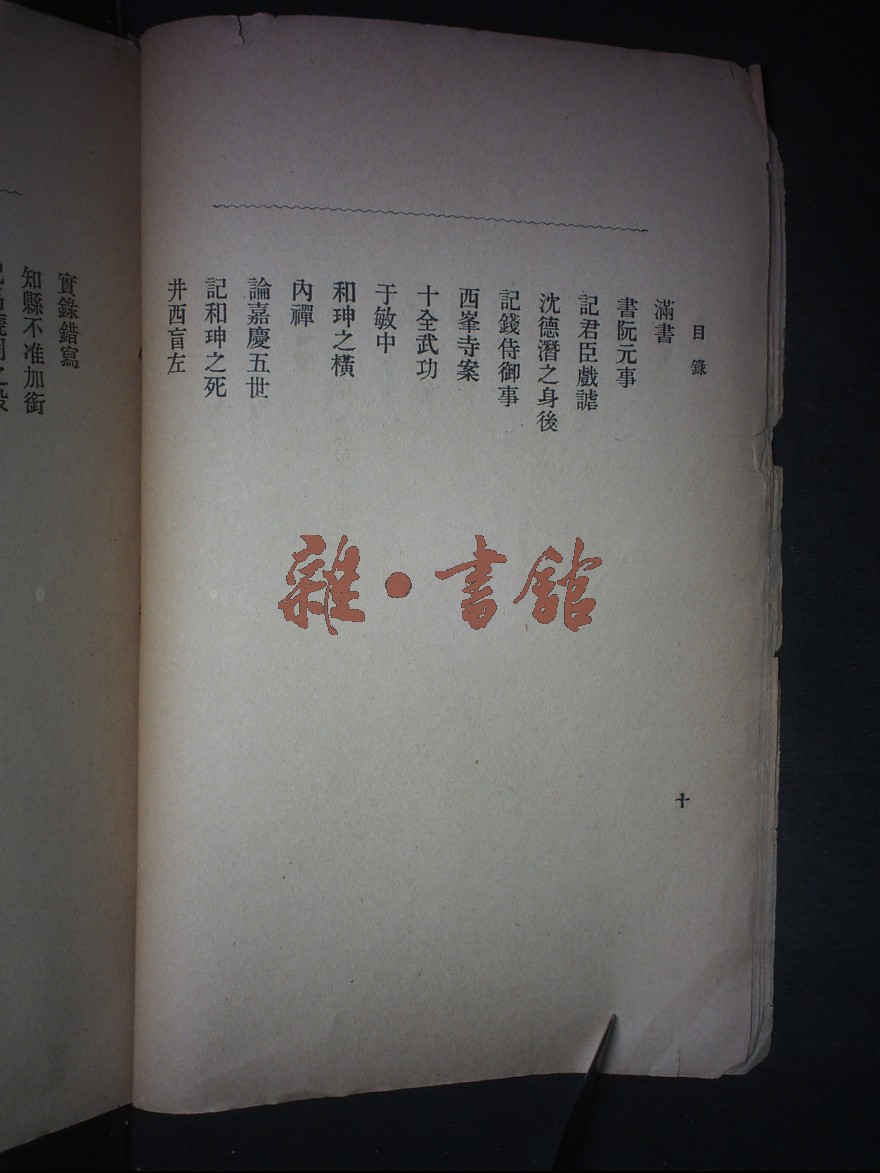 目錄
滿書
書阮元事
記君臣戲謔
沈德潛之身後
記錢侍御事
西峯寺案
十全武功
于敏中
和珅之橫
內禪
論嘉慶五世
記和珅之死
井西盲左
十
雜·書館
實錄錯寫
知縣不准加銜